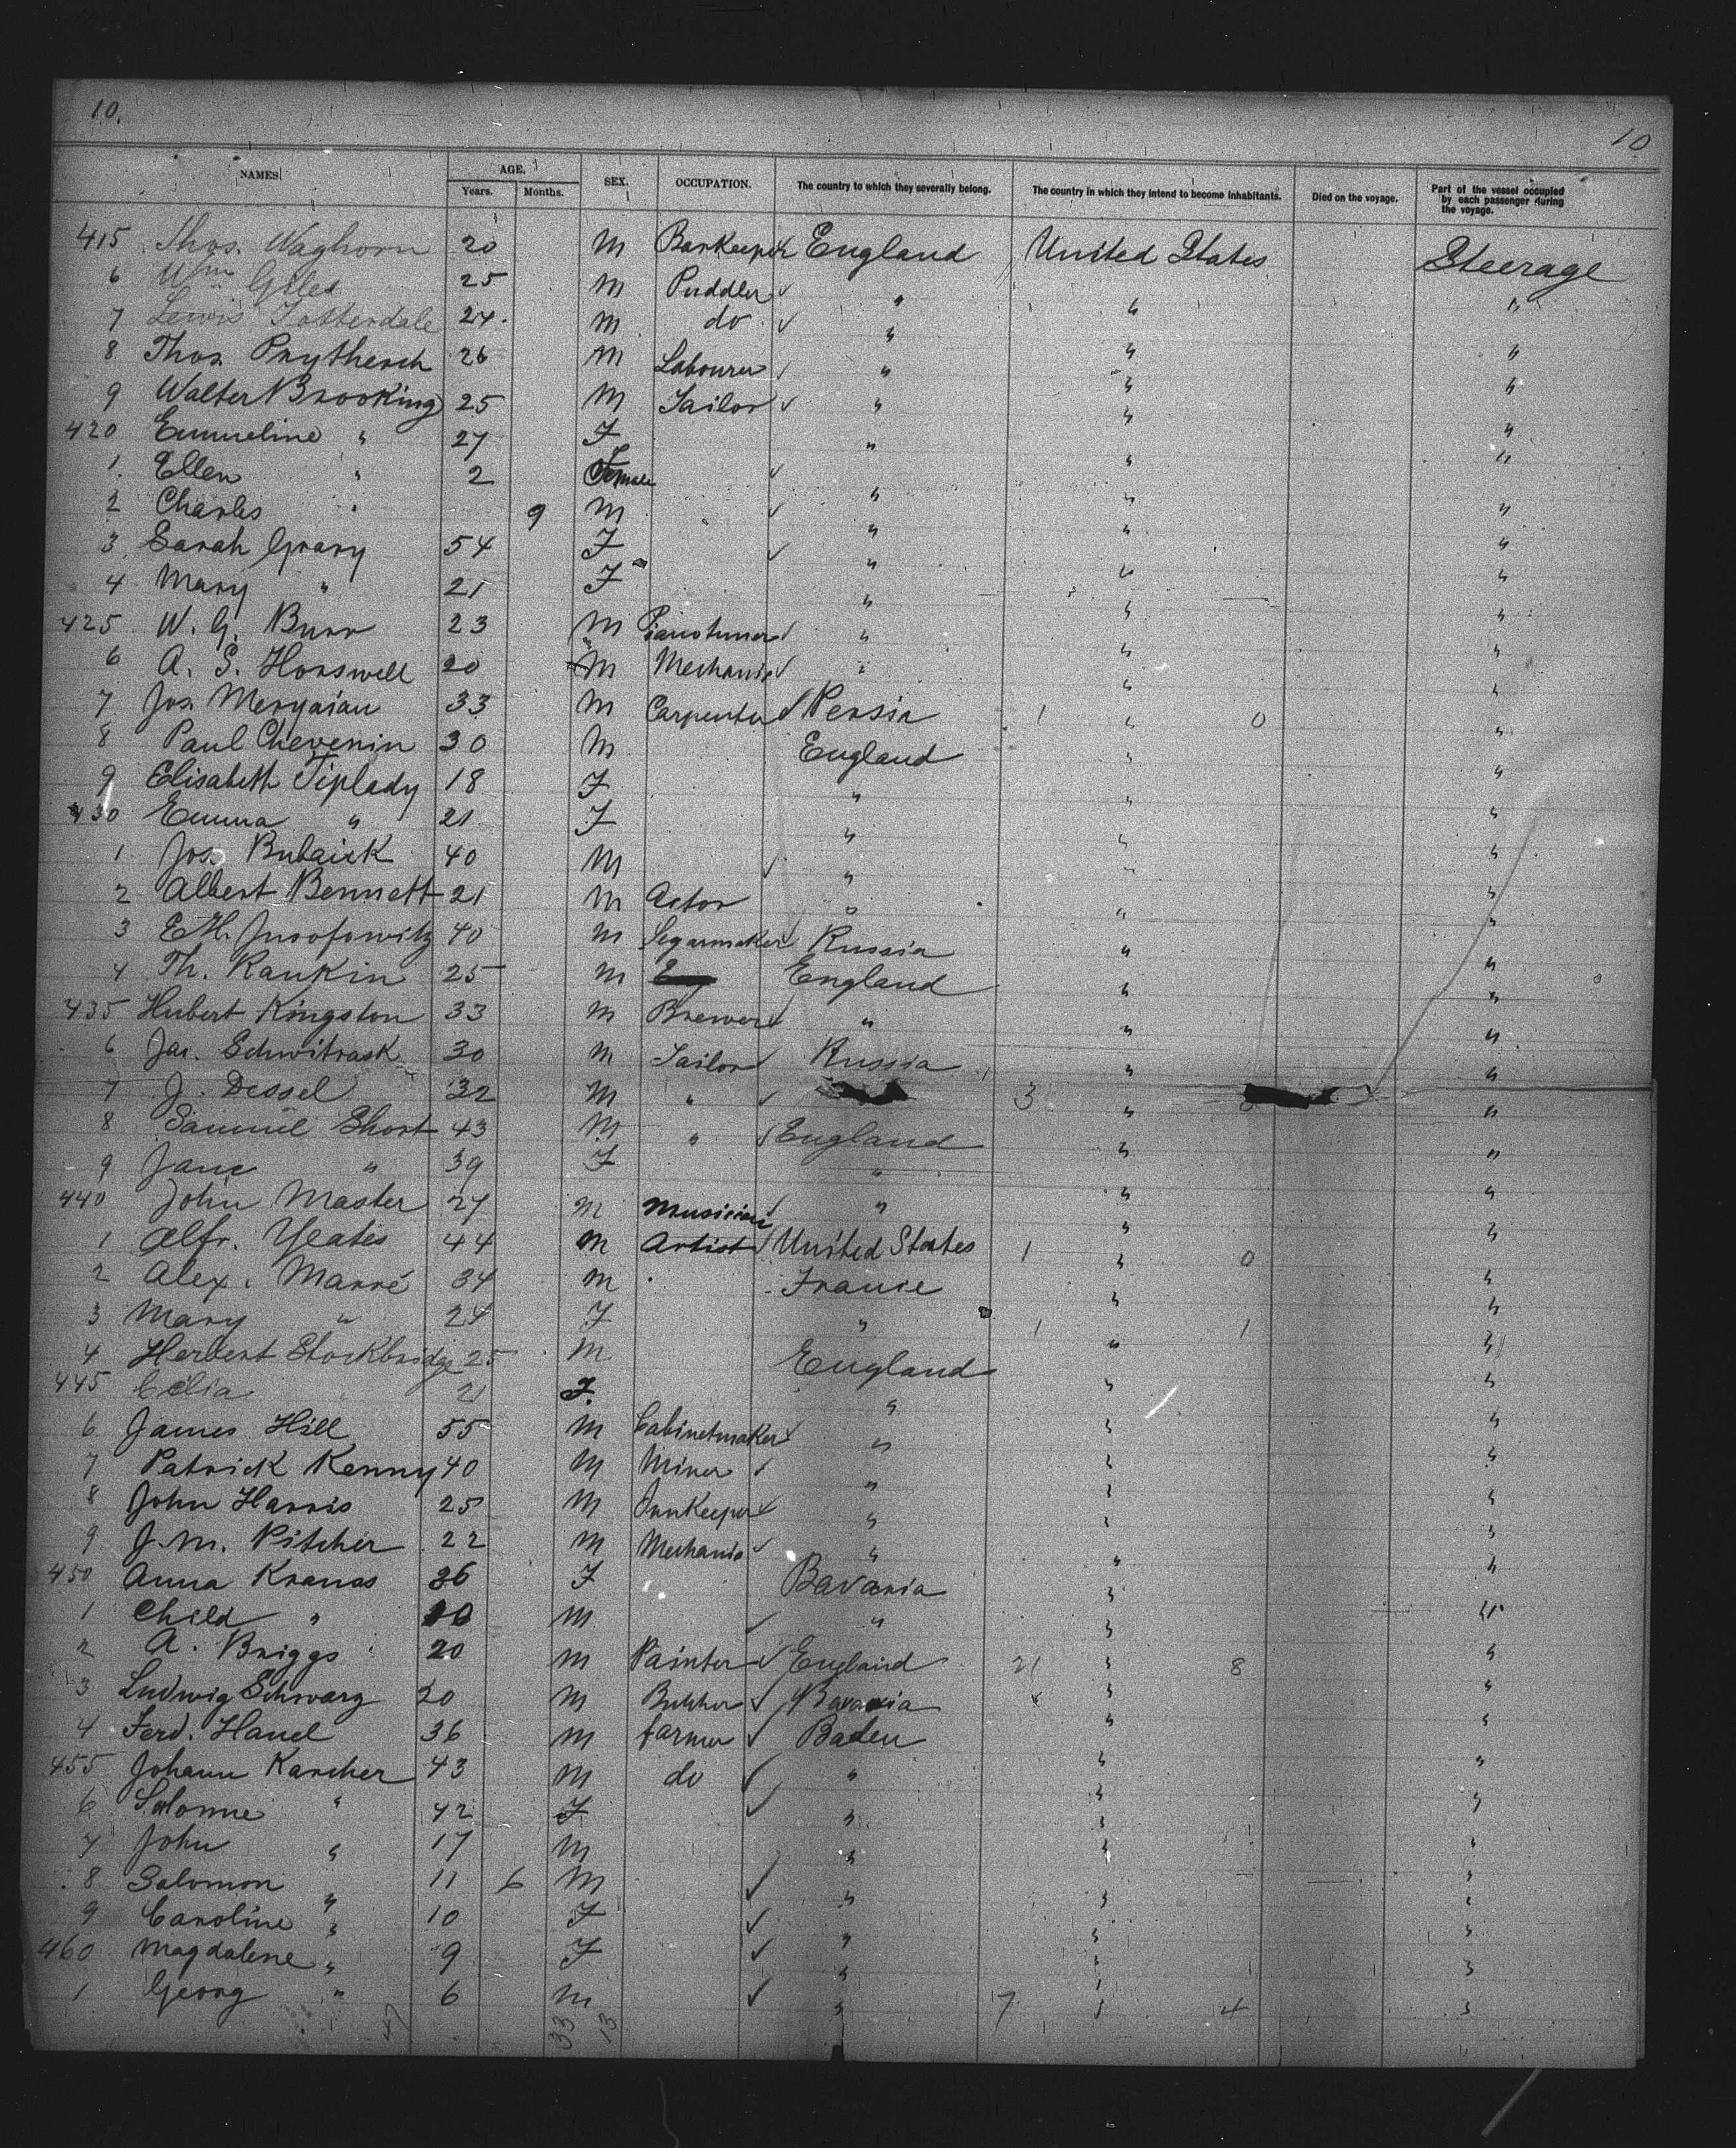 10.
10
NAMES. AGE. Years. Months. SEX. OCCUPATION. The country to which they severally belong. The country in which they intend to become inhabitants. Died on the voyage. Part of the vessel occupied by each passenger during the voyage.
415 Thos. Waghorn 20 M Barkeeper England United States Steerage
6 Wm Giles 25 M Puddler " " "
7 Lewis Totterdale 24 M do " " "
8 Thos. Prytherch 26 M Labourer " " "
9 Walter Brooking 25 M Tailor " " "
420 Emmeline " 27 F " " "
1 Ellen " 2 Female " " "
2 Charles " 9 M " " "
3 Sarah Grary 54 F " " "
4 Mary " 21 F " " "
425 W. G. Burr 23 M Pianotuner " " "
6 A. S. Horswell 20 M Mechanic " " "
7 Jos. Meryaian 33 M Carpenter Persia 1 " 0 "
8 Paul Chevenin 30 M England " "
9 Elisabeth Tiplady 18 F " " "
430 Emma " 21 F " " "
1 Jos. Bulaick 40 M " " "
2 Albert Bennett 21 M Actor " " "
3 40 M Segarmaker Russia " "
4 Th. Rankin 25 M England " "
435 Hubert Kingston 33 M Brewer " " "
6 Jas. Schwitrask 30 M Tailor Russia " "
7 J. Dessel 32 M " 3 " "
8 Samuel Short 43 M " England " "
9 Jane " 39 F " " "
440 John Master 27 M Musician " " "
1 Alfr. Yeates 44 M Artist United States 1 " 0 "
2 Alex. Marré 34 M France " "
3 Mary " 24 F " 1 " 1 "
4 Herbert Stockbridge 25 M England " "
445 Celia 21 F " " "
6 James Hill 55 M Cabinetmaker " " "
7 Patrick Kenny 40 M Miner " " "
8 John Harris 25 M Innkeeper " " "
9 J. M. Pitcher 22 M Mechanic " " "
450 Anna Kranas 36 F Bavaria " "
1 Child " M " " "
2 A. Briggs 20 M Painter England 21 " 8 "
3 Ludwig Schwarz 20 M Butcher Bavaria " "
4 Ferd. Hanel 36 M farmer Baden " "
455 Johann Karcher 43 M do " " "
6 Salome " 42 F " " "
7 John " 17 M " " "
8 Salomon " 11 6 M " " "
9 Caroline " 10 F " " "
460 Magdalene " 9 F " " "
1 Georg " 6 M " 7 " 4 "
47 33 13